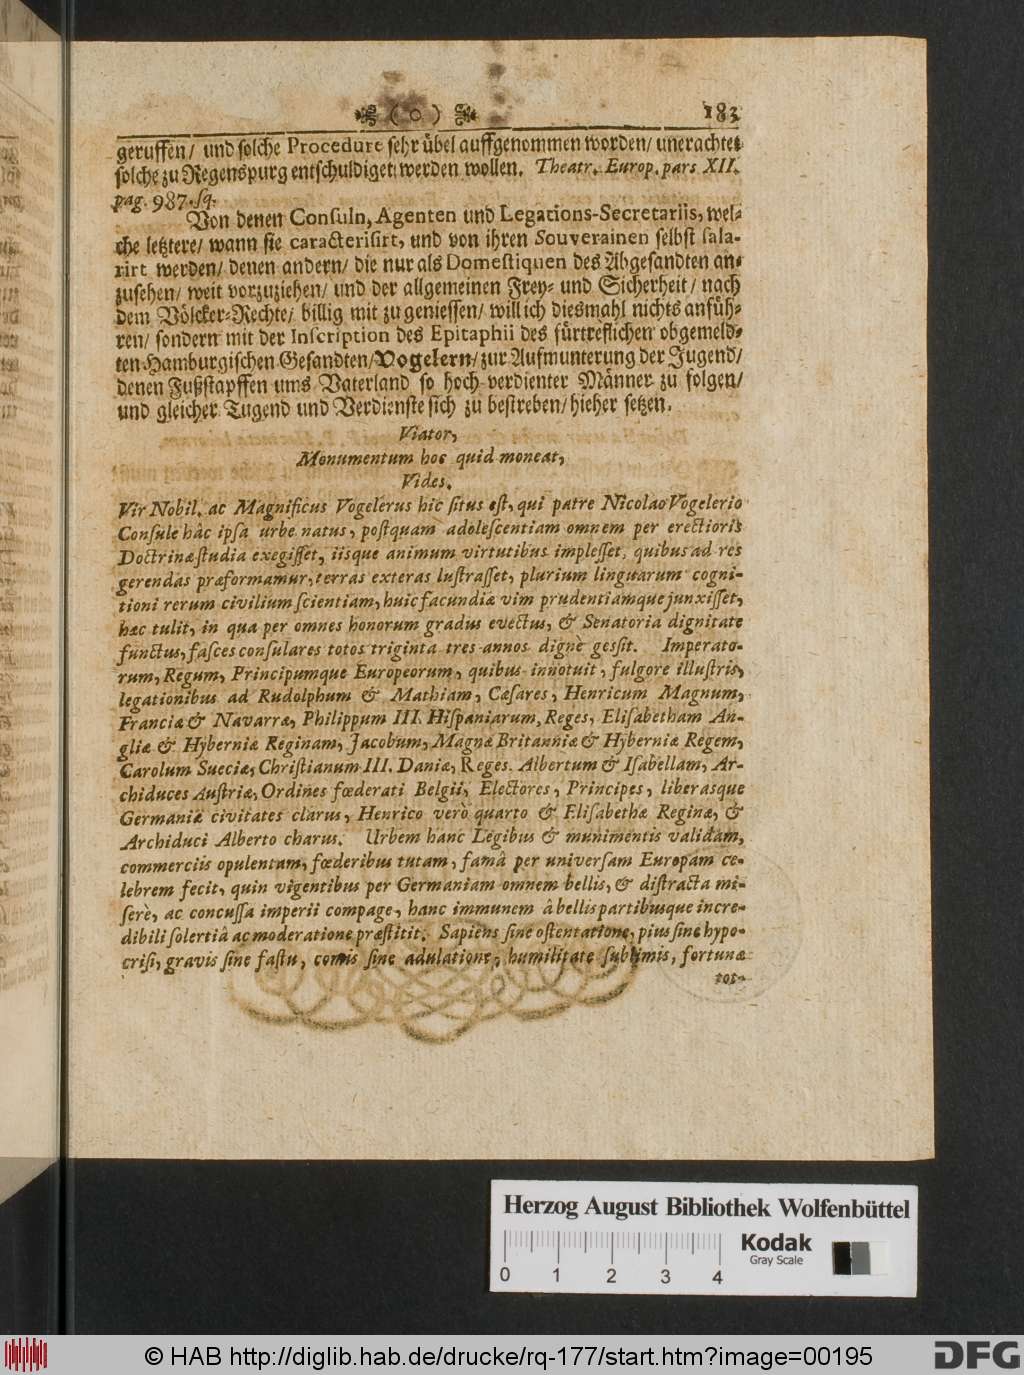 ( o ) 183
geruffen/ und solche Procedure sehr übel auffgenommen worden/ unerachtet
solche zu Regenspurg entschuldiget werden wollen. Theatr. Europ. pars XII.
pag. 987. sq.
Von denen Consuln, Agenten und Legations-Secretariis, wel-
che letztere/ wann sie caracterisirt, und von ihren Souverainen selbst sala-
rirt werden/ denen andern/ die nur als Domestiquen des Abgesandten an-
zusehen/ weit vorzuziehen/ und der allgemeinen Frey- und Sicherheit/ nach
dem Völcker-Rechte/ billig mit zu geniessen/ will ich diesmahl nichts anfüh-
ren/ sondern mit der Inscription des Epitaphii des fürtreflichen obgemeld-
ten Hamburgischen Gesandten/ Vogelern/ zur Aufmunterung der Jugend/
denen Fußstapffen ums Vaterland so hoch-verdienter Männer zu folgen/
und gleicher Tugend und Verdienste sich zu bestreben/ hieher setzen.
Viator,
Monumentum hoc quid moneat,
Vides.
Vir Nobil. ac Magnificus Vogelerus hic situs est, qui patre Nicolao Vogelerio
Consule hâc ipsa urbe natus, postquam adolescentiam omnem per erectioris
Doctrinæ studia exegisset, iisque animum virtutibus implesset, quibus ad res
gerendas præformamur, terras exteras lustrasset, plurium linguarum cogni-
tioni rerum civilium scientiam, huic facundiæ vim prudentiamque junxisset,
hac tulit, in qua per omnes honorum gradus evectus, & Senatoria dignitate
functus, fasces consulares totos triginta tres annos dignè gessit. Imperato-
rum, Regum, Principumque Europeorum, quibus innotuit, fulgore illustris,
legationibus ad Rudolphum & Mathiam, Cæsares, Henricum Magnum,
Franciæ & Navarræ, Philippum III. Hispaniarum, Reges, Elisabetham An-
gliæ & Hyberniæ Reginam, Jacobum, Magnæ Britanniæ & Hyberniæ Regem,
Carolum Sueciæ, Christianum III. Daniæ, Reges. Albertum & Isabellam, Ar-
chiduces Austriæ, Ordines fœderati Belgii, Electores, Principes, liberasque
Germaniæ civitates clarus, Henrico verò quarto & Elisabethæ Reginæ, &
Archiduci Alberto charus. Urbem hanc Legibus & munimentis validam,
commerciis opulentam, fœderibus tutam, famâ per universam Europam ce-
lebrem fecit, quin vigentibus per Germaniam omnem bellis, & distracta mi-
serè, ac concussa imperii compage, hanc immunem â bellis partibusque incre-
dibili solertiâ ac moderatione præstitit. Sapiens sine ostentatione, pius sine hypo-
crisi, gravis sine fastu, comis sine adulatione, humilitate sublimis, fortunæ
tot-
Herzog August Bibliothek Wolfenbüttel
Kodak
Gray Scale
0 1 2 3 4
© HAB http://diglib.hab.de/drucke/rq-177/start.htm?image=00195
DFG